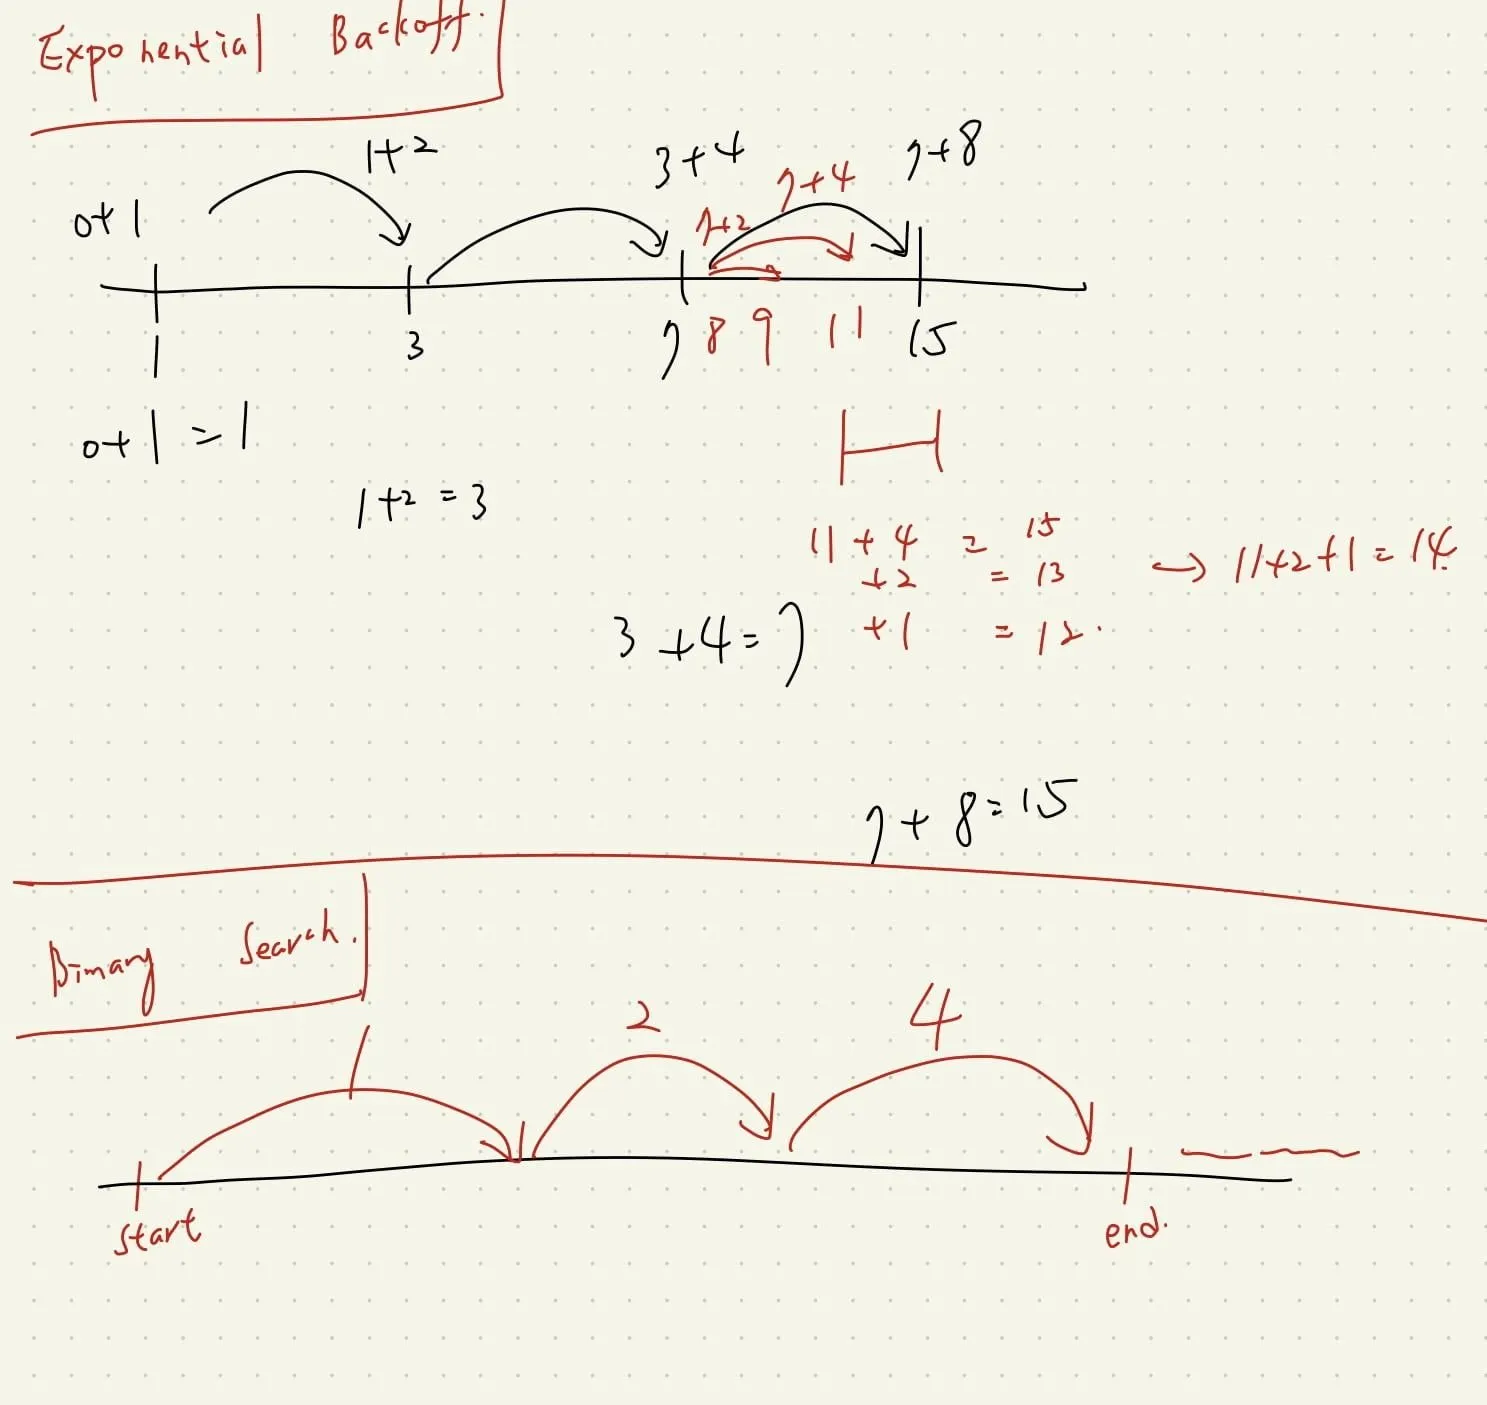 Exponential Backoff.
0+1
1+2
3+4
7+2
7+4
7+8
1
3
7
8
9
11
15
0+1=1
1+2=3
11+4=15
+2=13 → 11+2+1=14.
+1=12.
3+4=7
7+8=15
Binary Search.
1
2
4
start
end.